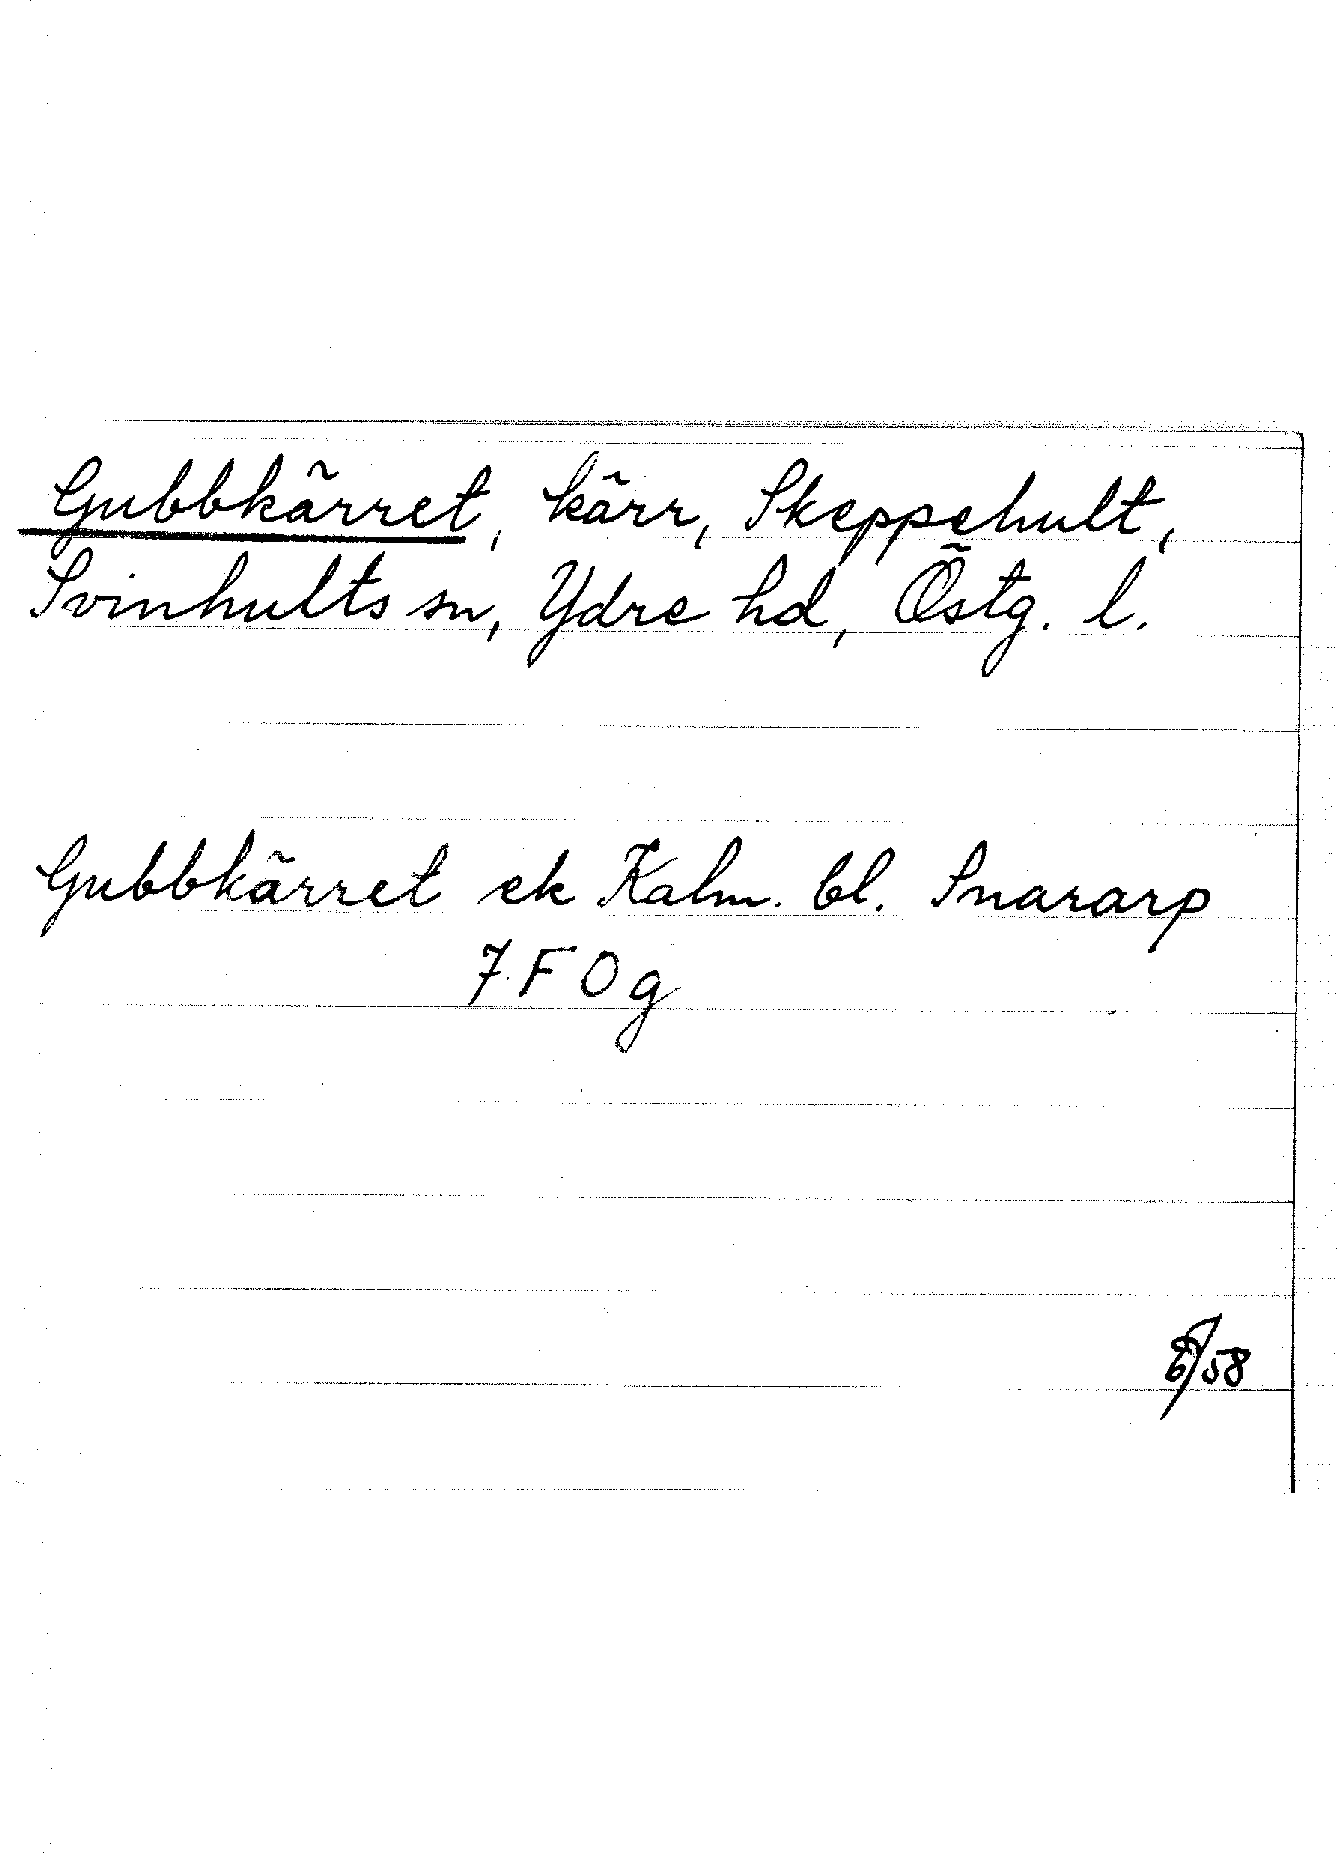 Gubbkärret, kärr, Skeppehult,
Svinhults sn, Ydre hd, Östg. l.
Gubbkärret ek Kalm. bl. Snararp
7 F 0 g
6/58